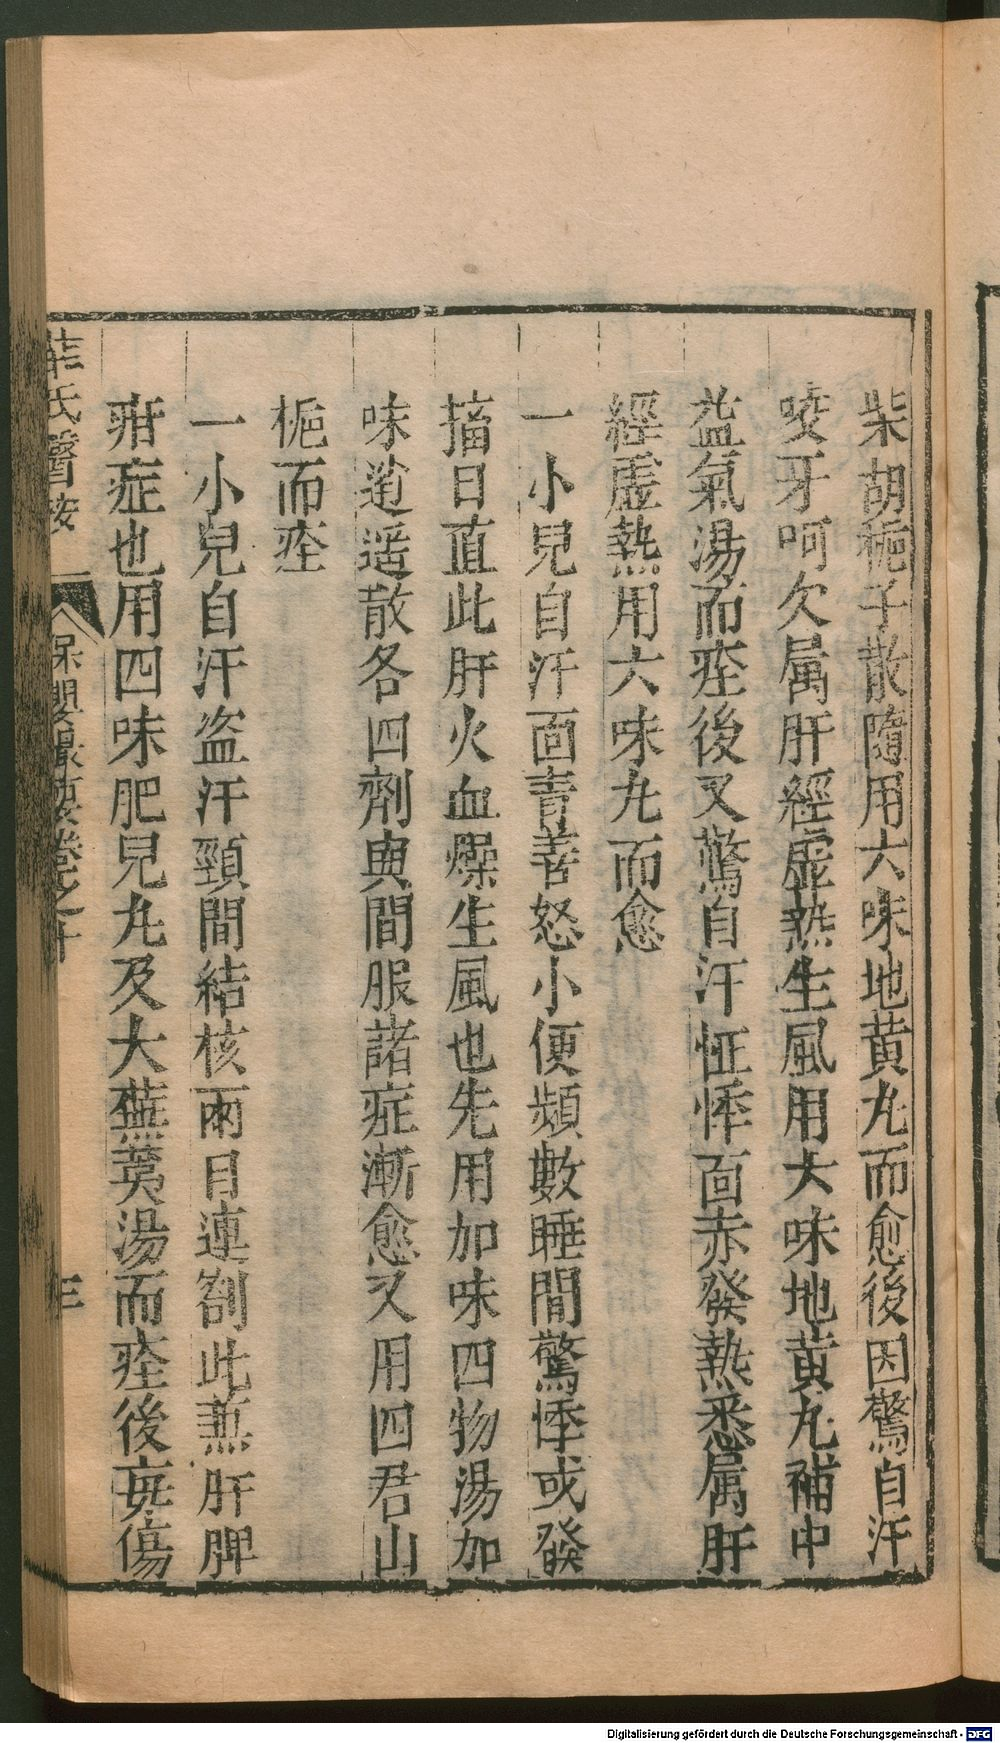 柴胡梔子散隨用六味地黄丸而愈後因驚自汗
咬牙呵欠属肝經虛熱生風用大味地黄丸補中
益氣湯而痊後又驚自汗怔悸面赤發熱悉属肝
經虛熱用六味丸而愈
一小兒自汗面青善怒小便頻數睡間驚悸或發
搐曰直此肝火血燥生風也先用加味四物湯加
味逍遥散各四劑與間服諸症漸愈又用四君山
梔而痊
一小兒自汗盗汗頸間結核兩目連劄此䓈肝脾
疳症也用四味肥兒丸及大蕪荑湯而痊後毎傷
薛氏醫按
保嬰撮要卷之十
三
Digitalisierung gefördert durch die Deutsche Forschungsgemeinschaft - DFG